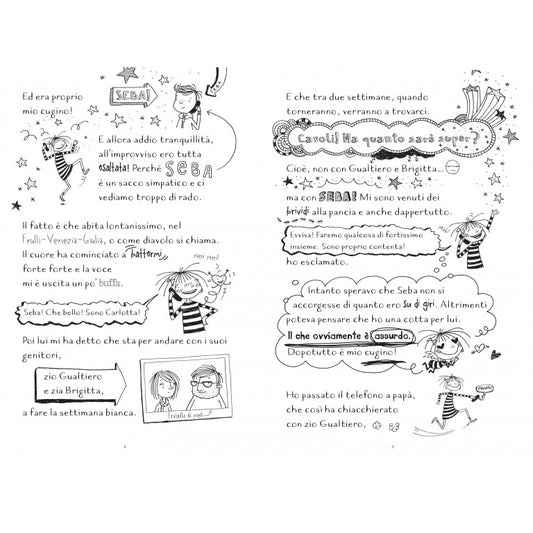 Ed era proprio
mio cugino!
SEBA!
E allora addio tranquillità,
all'improvviso ero tutta
esaltata! Perché SEBA
è un sacco simpatico e ci
vediamo troppo di rado.
Il fatto è che abita lontanissimo, nel
Frulli-Venezia-Giulia, o come diavolo si chiama.
Il cuore ha cominciato a battermi
forte forte e la voce
mi è uscita un po' buffa.
Seba! Che bello! Sono Carlotta!
Poi lui mi ha detto che sta per andare con i suoi
genitori,
zio Gualtiero
e zia Brigitta,
a fare la settimana bianca.
fratello di papà
6
E che tra due settimane, quando
torneranno, verranno a trovarci.
Cavoli! Ma quanto sarà super?
Cioè, non con Gualtiero e Brigitta...
ma con SEBA! Mi sono venuti dei
brividi alla pancia e anche dappertutto.
Evviva! Faremo qualcosa di fortissimo
insieme. Sono proprio contenta!
ho esclamato.
Intanto speravo che Seba non si
accorgesse di quanto ero su di giri. Altrimenti
poteva pensare che ho una cotta per lui.
Il che ovviamente è assurdo.
Dopotutto è mio cugino!
Ho passato il telefono a papà,
che così ha chiacchierato
con zio Gualtiero,
7